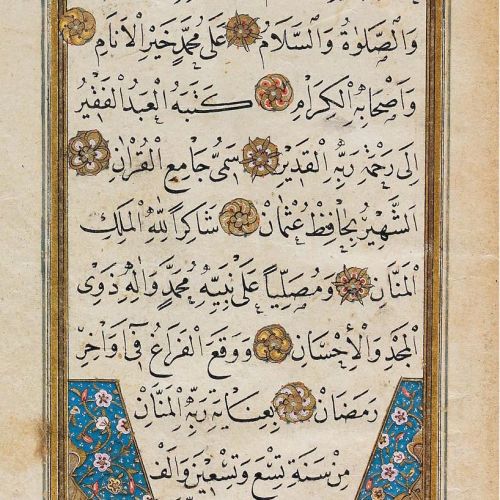 وَالصَّلٰوةُ وَالسَّلَامُ عَلٰى مُحَمَّدٍ خَيْرِ الْاَنَامِ
وَاَصْحَابِهِ الْكِرَامِ كَتَبَهُ الْعَبْدُ الْفَقِيرُ
اِلٰى رَحْمَةِ رَبِّهِ الْقَدِيرِ سَمِىُّ جَامِعِ الْقُرْاٰنِ
الشَّهِيرُ بِحَافِظْ عُثْمَانْ شَاكِرًا لِلّٰهِ الْمَلِكِ
الْمَنَّانِ وَمُصَلِّيًا عَلٰى نَبِيِّهِ مُحَمَّدٍ وَاٰلِهِ ذَوِى
الْمَجْدِ وَالْاِحْسَانِ وَوَقَعَ الْفَرَاغُ فِى وَاخِرِ
رَمَضَانَ بِعِنَايَةِ رَبِّهِ الْمَنَّانِ
مِنْ سَنَةِ تِسْعٍ وَتِسْعِينَ وَالْفْ